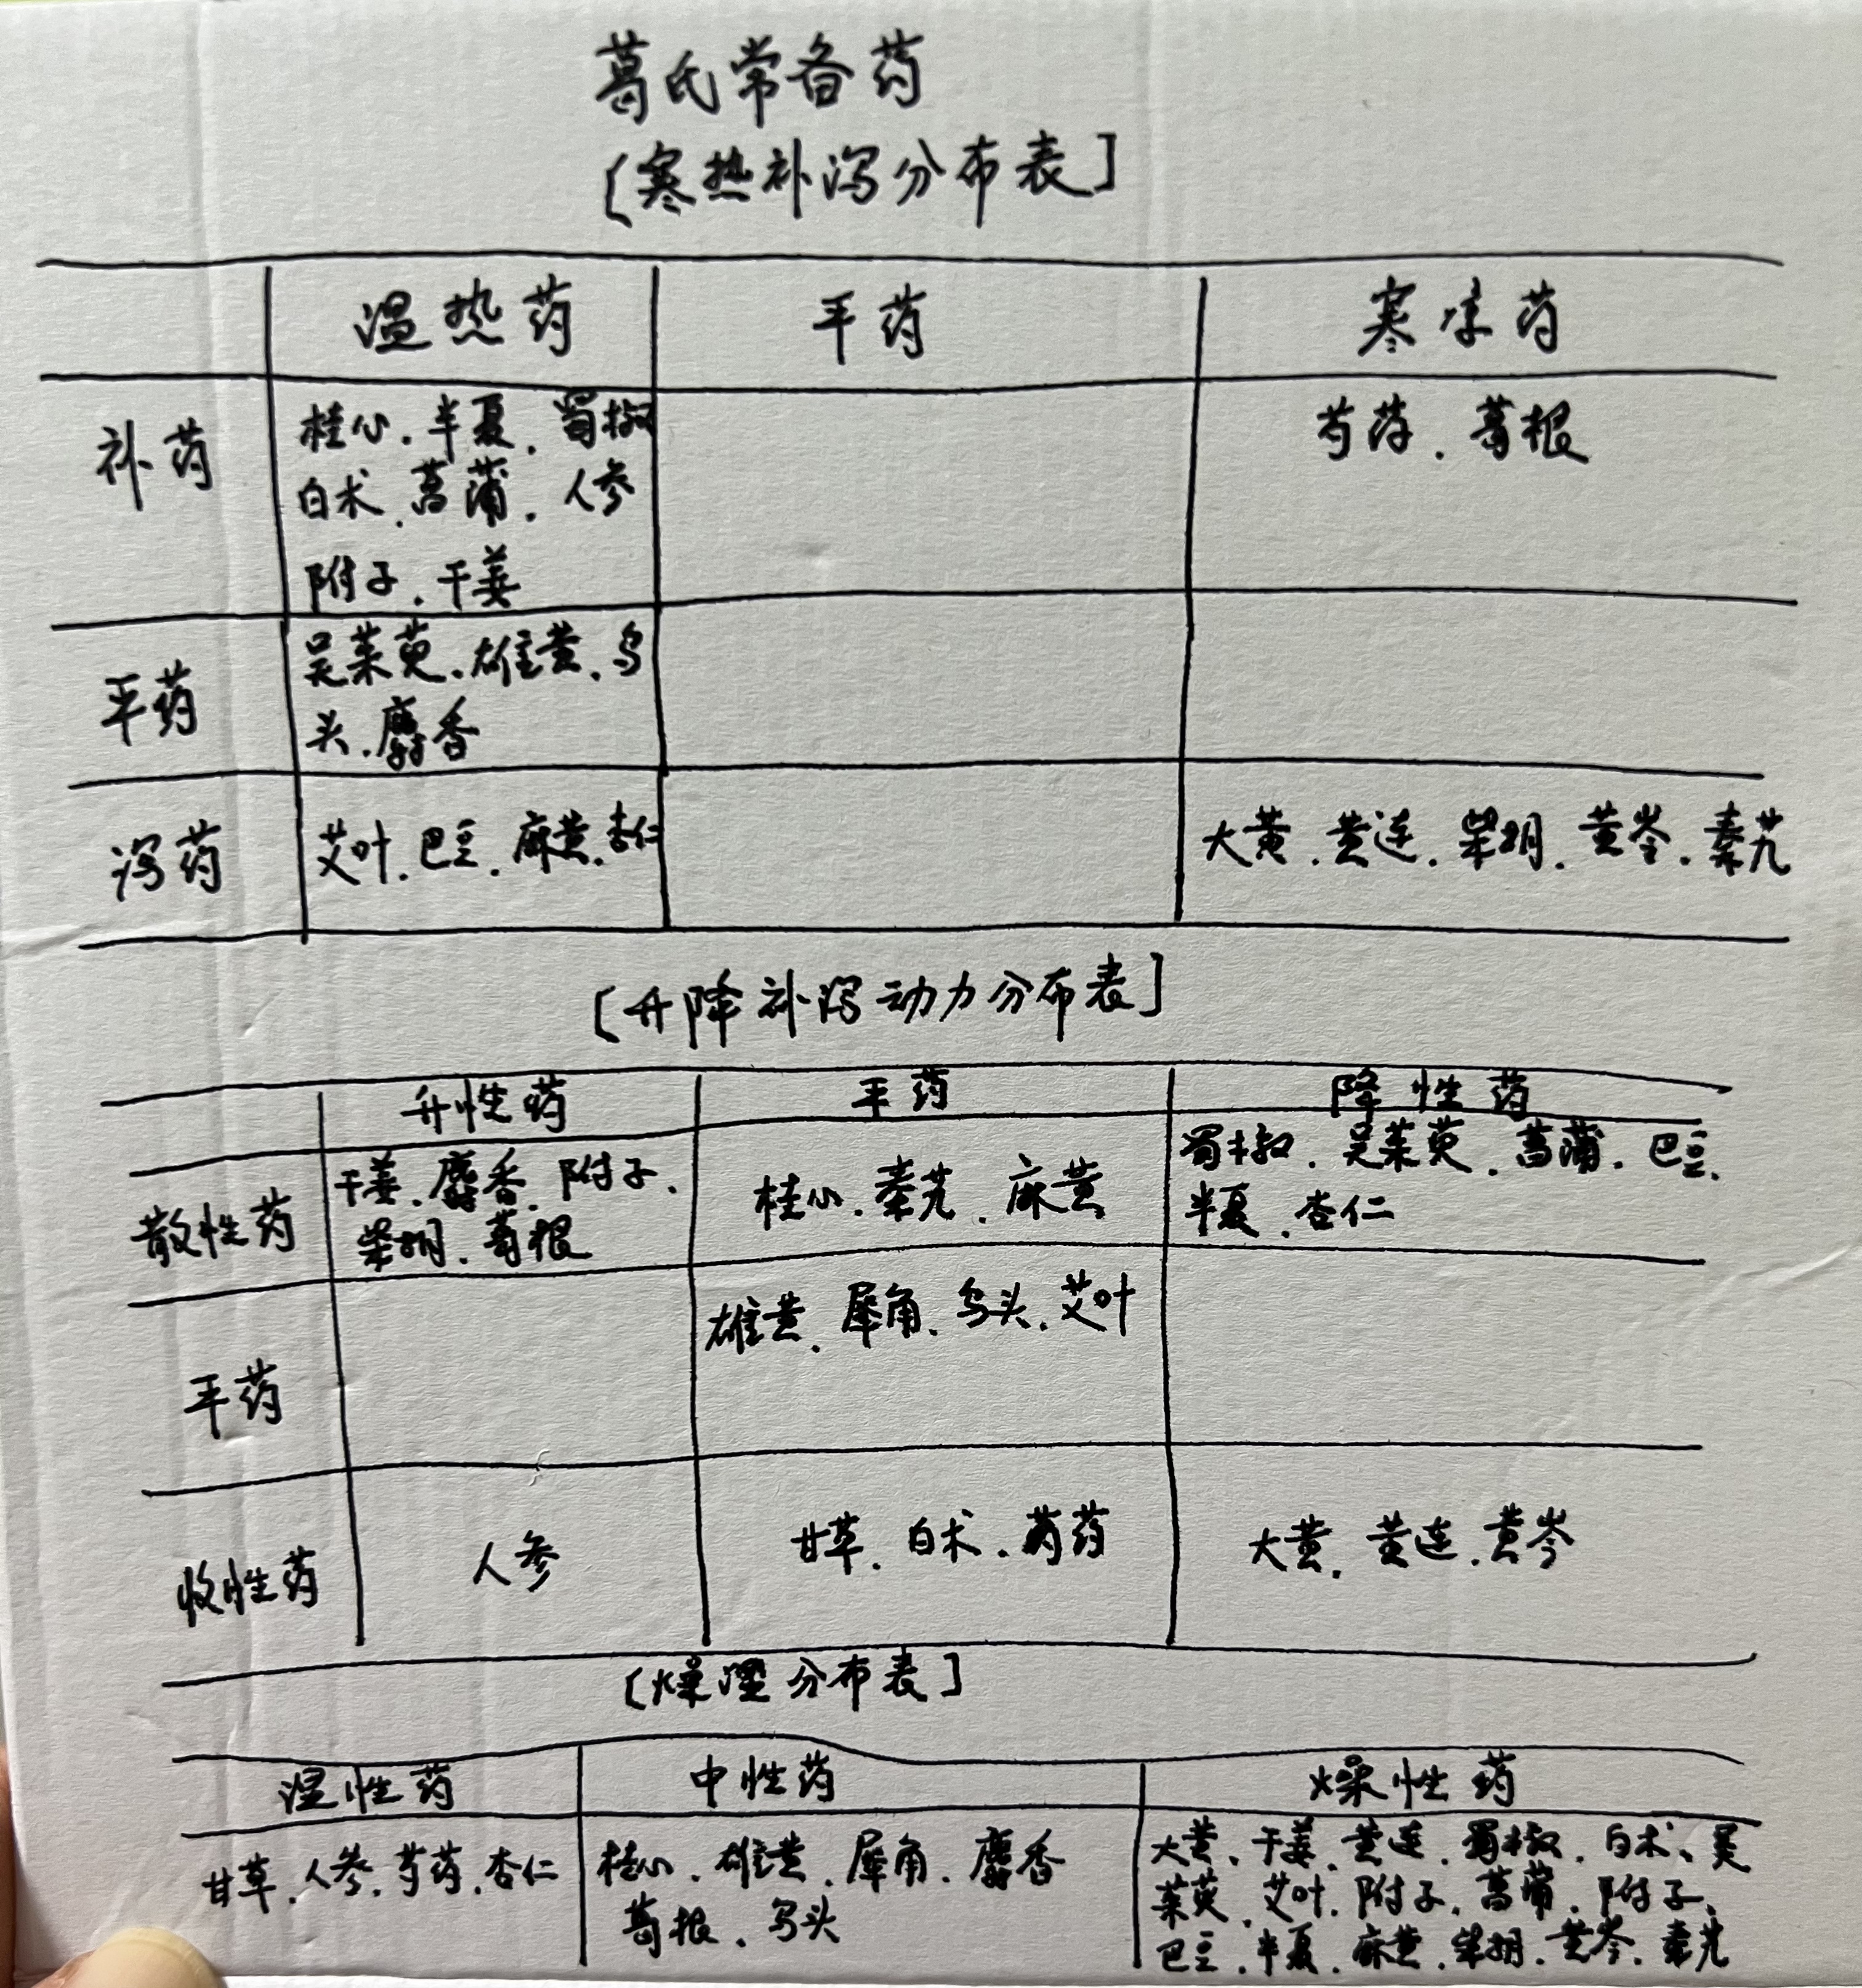 葛氏常备药
[寒热补泻分布表]
温热药 平药 寒凉药
补药 桂心.半夏.蜀椒 芍药.葛根
白术.菖蒲.人参
附子.干姜
平药 吴茱萸.雄黄.乌
头.麝香
泻药 艾叶.巴豆.麻黄.杏仁 大黄.黄连.柴胡.黄岑.秦艽
[升降补泻动力分布表]
升性药 平药 降性药
散性药 干姜.麝香.附子. 桂心.秦艽.麻黄 蜀椒.吴茱萸.菖蒲.巴豆.
柴胡.葛根 半夏.杏仁
平药 雄黄.犀角.乌头.艾叶
收性药 人参 甘草.白术.芍药 大黄.黄连.黄岑
[燥湿分布表]
湿性药 中性药 燥性药
甘草.人参.芍药.杏仁 桂心.雄黄.犀角.麝香 大黄.干姜.黄连.蜀椒.白术、吴
葛根.乌头 茱萸.艾叶.附子.菖蒲.附子、
巴豆.半夏.麻黄.柴胡.黄岑.秦艽